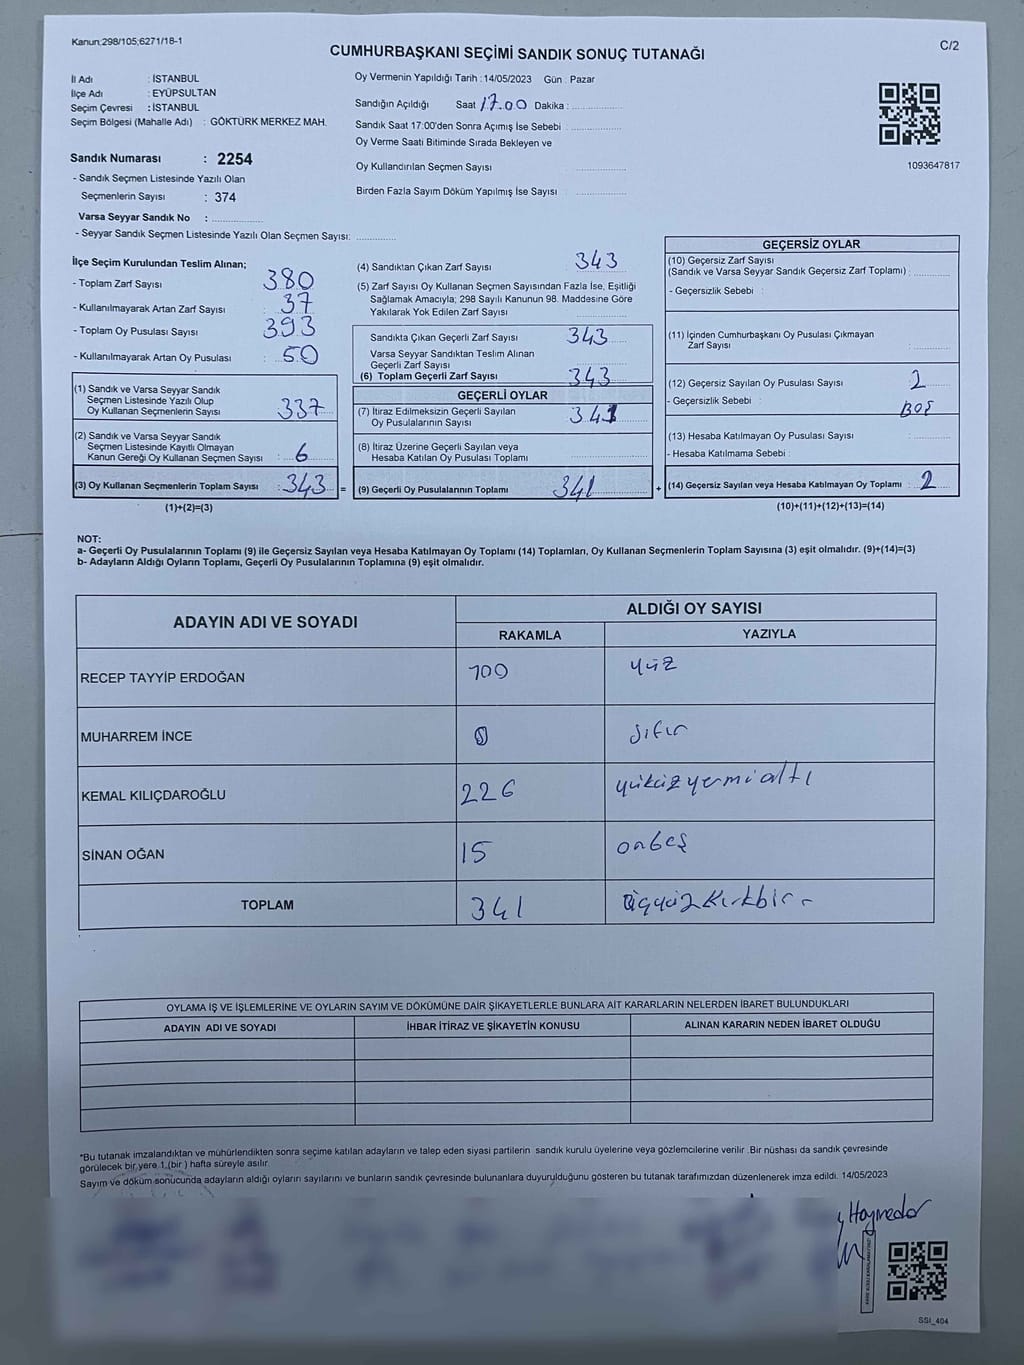 Kanun;298/105;6271/18-1
C/2
CUMHURBAŞKANI SEÇİMİ SANDIK SONUÇ TUTANAĞI
İl Adı : İSTANBUL
İlçe Adı : EYÜPSULTAN
Seçim Çevresi : İSTANBUL
Seçim Bölgesi (Mahalle Adı) : GÖKTÜRK MERKEZ MAH.
Sandık Numarası : 2254
- Sandık Seçmen Listesinde Yazılı Olan
Seçmenlerin Sayısı : 374
Varsa Seyyar Sandık No :
- Seyyar Sandık Seçmen Listesinde Yazılı Olan Seçmen Sayısı:
Oy Vermenin Yapıldığı Tarih : 14/05/2023 Gün : Pazar
Sandığın Açıldığı Saat 17.00 Dakika :
Sandık Saat 17:00'den Sonra Açımış İse Sebebi
Oy Verme Saati Bitiminde Sırada Bekleyen ve
Oy Kullandırılan Seçmen Sayısı
Birden Fazla Sayım Döküm Yapılmış İse Sayısı
1093647817
İlçe Seçim Kurulundan Teslim Alınan;
- Toplam Zarf Sayısı : 380
- Kullanılmayarak Artan Zarf Sayısı : 37
- Toplam Oy Pusulası Sayısı : 393
- Kullanılmayarak Artan Oy Pusulası : 50
(1) Sandık ve Varsa Seyyar Sandık
Seçmen Listesinde Yazılı Olup
Oy Kullanan Seçmenlerin Sayısı : 337
(2) Sandık ve Varsa Seyyar Sandık
Seçmen Listesinde Kayıtlı Olmayan
Kanun Gereği Oy Kullanan Seçmen Sayısı : 6
(3) Oy Kullanan Seçmenlerin Toplam Sayısı : 343 =
(1)+(2)=(3)
(4) Sandıktan Çıkan Zarf Sayısı 343
(5) Zarf Sayısı Oy Kullanan Seçmen Sayısından Fazla İse, Eşitliği
Sağlamak Amacıyla; 298 Sayılı Kanunun 98. Maddesine Göre
Yakılarak Yok Edilen Zarf Sayısı
Sandıkta Çıkan Geçerli Zarf Sayısı 343
Varsa Seyyar Sandıktan Teslim Alınan
Geçerli Zarf Sayısı
(6) Toplam Geçerli Zarf Sayısı 343
GEÇERLİ OYLAR
(7) İtiraz Edilmeksizin Geçerli Sayılan
Oy Pusulalarının Sayısı 341
(8) İtiraz Üzerine Geçerli Sayılan veya
Hesaba Katılan Oy Pusulası Toplamı
(9) Geçerli Oy Pusulalarının Toplamı 341 +
GEÇERSİZ OYLAR
(10) Geçersiz Zarf Sayısı
(Sandık ve Varsa Seyyar Sandık Geçersiz Zarf Toplamı) :
- Geçersizlik Sebebi :
(11) İçinden Cumhurbaşkanı Oy Pusulası Çıkmayan
Zarf Sayısı :
(12) Geçersiz Sayılan Oy Pusulası Sayısı : 2
- Geçersizlik Sebebi : BOŞ
(13) Hesaba Katılmayan Oy Pusulası Sayısı :
- Hesaba Katılmama Sebebi :
(14) Geçersiz Sayılan veya Hesaba Katılmayan Oy Toplamı : 2
(10)+(11)+(12)+(13)=(14)
NOT:
a- Geçerli Oy Pusulalarının Toplamı (9) ile Geçersiz Sayılan veya Hesaba Katılmayan Oy Toplamı (14) Toplamları, Oy Kullanan Seçmenlerin Toplam Sayısına (3) eşit olmalıdır. (9)+(14)=(3)
b- Adayların Aldığı Oyların Toplamı, Geçerli Oy Pusulalarının Toplamına (9) eşit olmalıdır.
ADAYIN ADI VE SOYADI ALDIĞI OY SAYISI
RAKAMLA YAZIYLA
RECEP TAYYİP ERDOĞAN 100 yüz
MUHARREM İNCE 0 sıfır
KEMAL KILIÇDAROĞLU 226 yükiizyermialtı
SİNAN OĞAN 15 onbeş
TOPLAM 341 üçyüzkırkbir
OYLAMA İŞ VE İŞLEMLERİNE VE OYLARIN SAYIM VE DÖKÜMÜNE DAİR ŞİKAYETLERLE BUNLARA AİT KARARLARIN NELERDEN İBARET BULUNDUKLARI
ADAYIN ADI VE SOYADI İHBAR İTİRAZ VE ŞİKAYETİN KONUSU ALINAN KARARIN NEDEN İBARET OLDUĞU
*Bu tutanak imzalandıktan ve mühürlendikten sonra seçime katılan adayların ve talep eden siyasi partilerin sandık kurulu üyelerine veya gözlemcilerine verilir .Bir nüshası da sandık çevresinde
görülecek bir yere 1 (bir ) hafta süreyle asılır
Sayım ve döküm sonucunda adayların aldığı oyların sayılarını ve bunların sandık çevresinde bulunanlara duyurulduğunu gösteren bu tutanak tarafımızdan düzenlenerek imza edildi. 14/05/2023
SSI_404